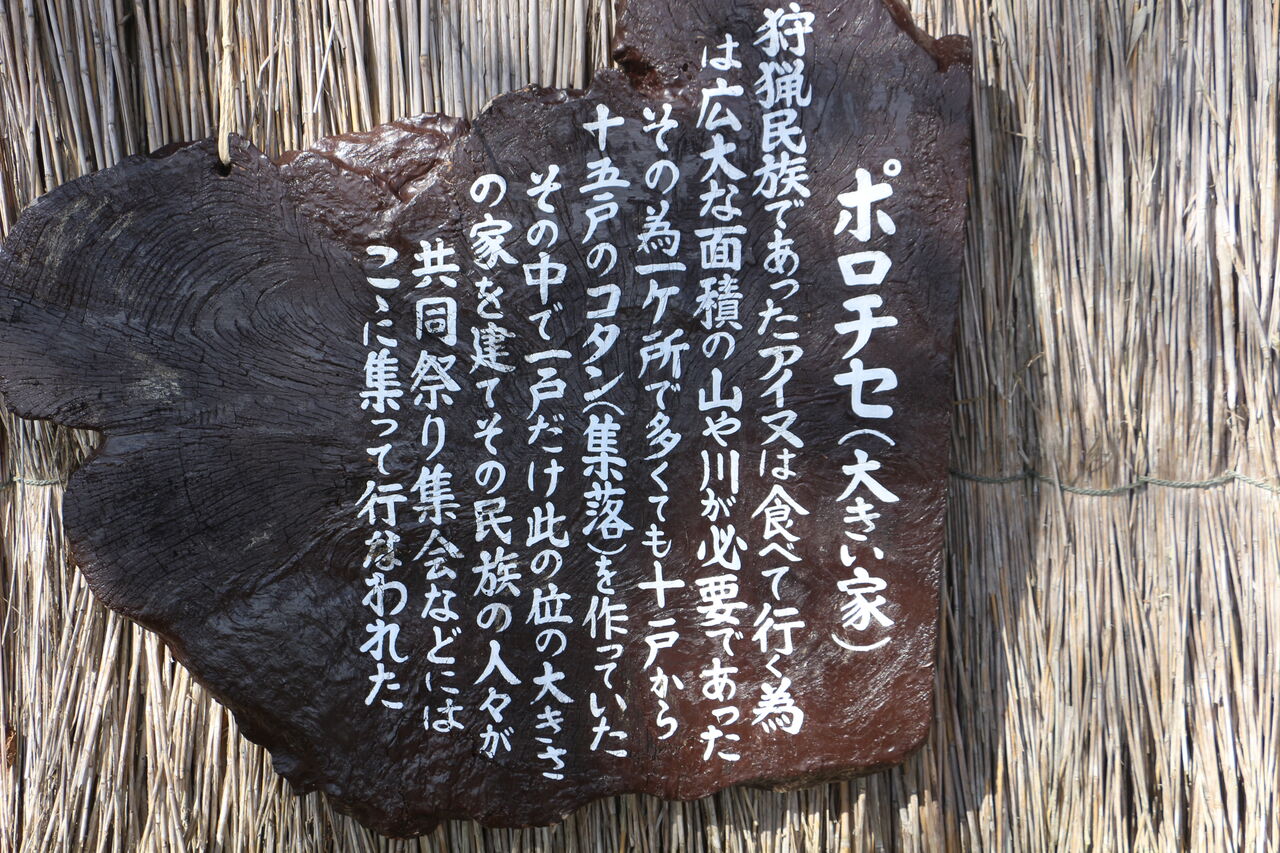 ポロチセ(大きい家)
狩猟民族であったアイヌは食べて行く為
は広大な面積の山や川が必要であった
その為一ケ所で多くても十戸から
十五戸のコタン(集落)を作っていた
その中で一戸だけ此の位の大きさ
の家を建てその民族の人々が
共同祭り集会などには
こゝに集って行なわれた